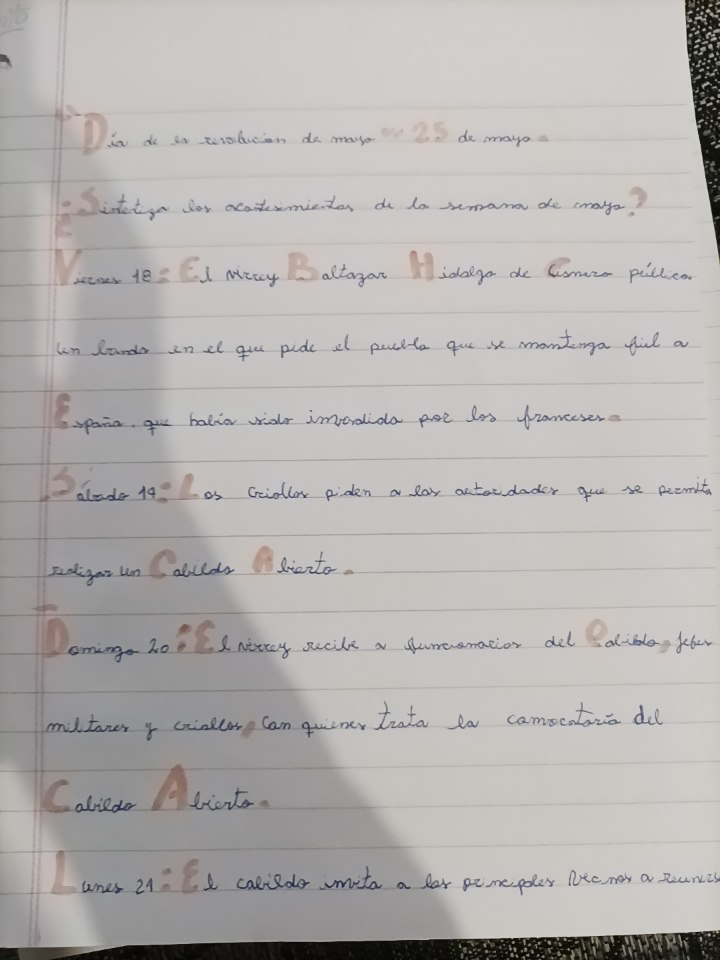 Día de la revolucion de mayo ~ 25 de mayo.
¿Sintetiza los acontesimientos de la semana de mayo?
Viernes 18: El virrey Baltazar Hidalgo de Cisnero pública
un bando en el que pide el pueblo que se mantenga fiel a
España. que había sido invadida por los franceses.
Sábado 19: Los criollos piden a las autoridades que se permita
realizar un Cabildo Abierto.
Domingo 20: El virrey recibe a funcionarios del Cabildo, jefes
militares y criollos, con quienes trata la convocatoría del
Cabildo Abierto.
Lunes 21: El cabildo invita a los principales vecinos a reunirs